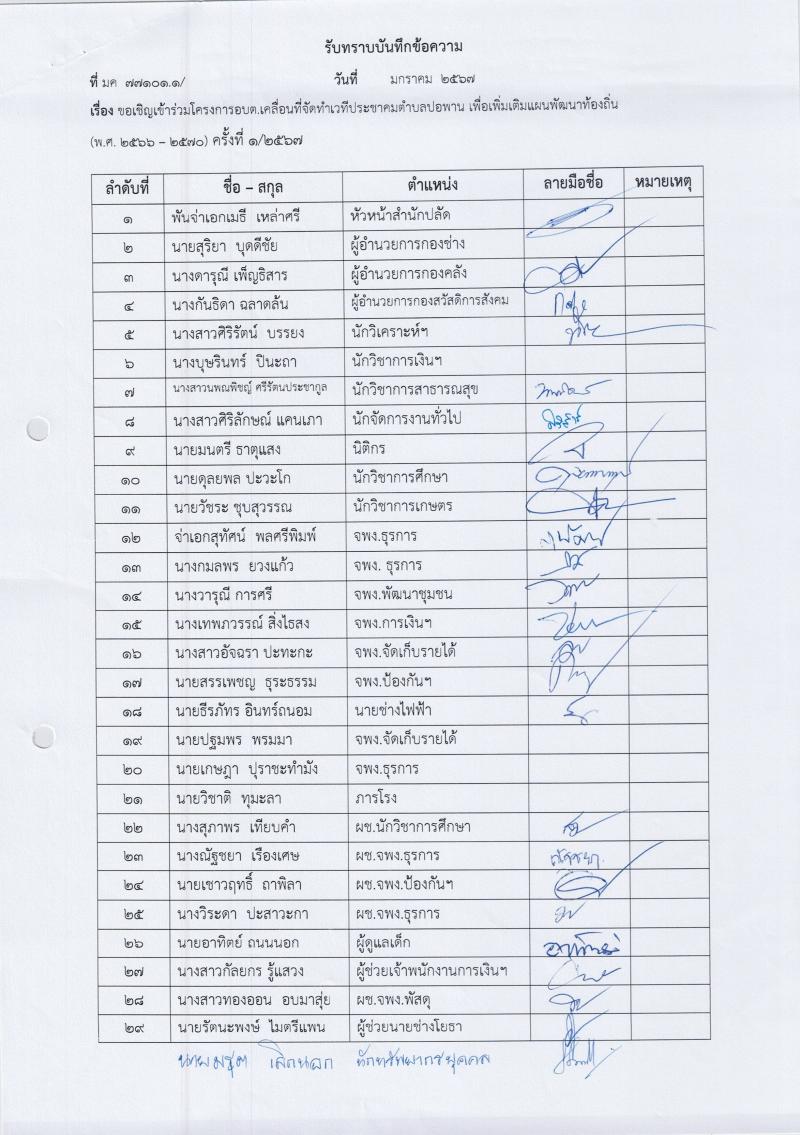 รับทราบบันทึกข้อความ
ที่ มค ๗๗๑๐๑.๑/ วันที่ มกราคม ๒๕๖๗
เรื่อง ขอเชิญเข้าร่วมโครงการอบต.เคลื่อนที่จัดทำเวทีประชาคมตำบลปอพาน เพื่อเพิ่มเติมแผนพัฒนาท้องถิ่น
(พ.ศ. ๒๕๖๖ – ๒๕๗๐) ครั้งที่ ๑/๒๕๖๗
ลำดับที่ ชื่อ – สกุล ตำแหน่ง ลายมือชื่อ หมายเหตุ
๑ พันจ่าเอกเมธี เหล่าศรี หัวหน้าสำนักปลัด
๒ นายสุริยา บุดดีชัย ผู้อำนวยการกองช่าง
๓ นางดารุณี เพ็ญธิสาร ผู้อำนวยการกองคลัง
๔ นางกันธิดา ฉลาดล้น ผู้อำนวยการกองสวัสดิการสังคม
๕ นางสาวศิริรัตน์ บรรยง นักวิเคราะห์ฯ
๖ นางบุษรินทร์ ปินะถา นักวิชาการเงินฯ
๗ นางสาวนพณพิชญ์ ศรีรัตนประชากูล นักวิชาการสาธารณสุข
๘ นางสาวศิริลักษณ์ แคนเภา นักจัดการงานทั่วไป
๙ นายมนตรี ธาตุแสง นิติกร
๑๐ นายดุลยพล ปะวะโก นักวิชาการศึกษา
๑๑ นายวัชระ ชุบสุวรรณ นักวิชาการเกษตร
๑๒ จ่าเอกสุทัศน์ พลศรีพิมพ์ จพง.ธุรการ
๑๓ นางกมลพร ยวงแก้ว จพง. ธุรการ
๑๔ นางวารุณี การศรี จพง.พัฒนาชุมชน
๑๕ นางเทพภวรรณ์ สิ่งไธสง จพง.การเงินฯ
๑๖ นางสาวอัจฉรา ปะทะกะ จพง.จัดเก็บรายได้
๑๗ นายสรรเพชญ ธุระธรรม จพง.ป้องกันฯ
๑๘ นายธีรภัทร อินทร์ถนอม นายช่างไฟฟ้า
๑๙ นายปฐมพร พรมมา จพง.จัดเก็บรายได้
๒๐ นายเกษฎา ปุราชะทำมัง จพง.ธุรการ
๒๑ นายวิชาติ ทุมะลา ภารโรง
๒๒ นางสุภาพร เทียบคำ ผช.นักวิชาการศึกษา
๒๓ นางณัฐชยา เรืองเศษ ผช.จพง.ธุรการ ณัฐชยา
๒๔ นายเชาวฤทธิ์ ถาพิลา ผช.จพง.ป้องกันฯ
๒๕ นางวิระดา ปะสาวะกา ผช.จพง.ธุรการ
๒๖ นายอาทิตย์ ถนนนอก ผู้ดูแลเด็ก
๒๗ นางสาวกัลยกร รู้แสวง ผู้ช่วยเจ้าพนักงานการเงินฯ
๒๘ นางสาวทองออน อบมาสุ่ย ผช.จพง.พัสดุ
๒๙ นายรัตนะพงษ์ ไมตรีแพน ผู้ช่วยนายช่างโยธา
นักทรัพยากรบุคคล